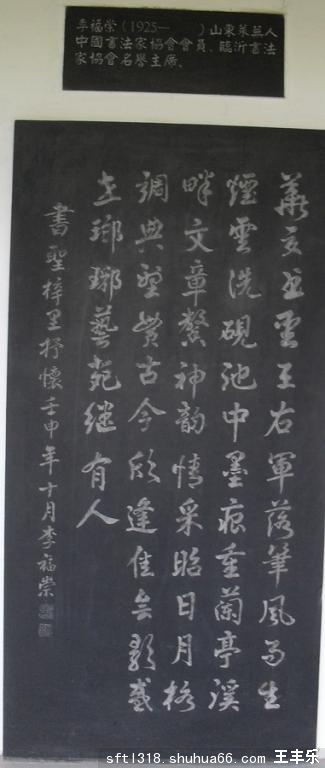 李福榮(1925—　　)山東萊蕪人
中國書法家協會會員、臨沂書法
家協會名譽主席。
華夏書聖王右軍落筆風雨生
煙雲洗硯池中墨痕重蘭亭溪
畔文章神韵情采昭日月格
調典型古今欣逢佳會歌盛
世瑯琊藝苑继有人
書聖梓里抒懷壬申年十月李福榮
sftl318.shuhua66.com 王丰乐